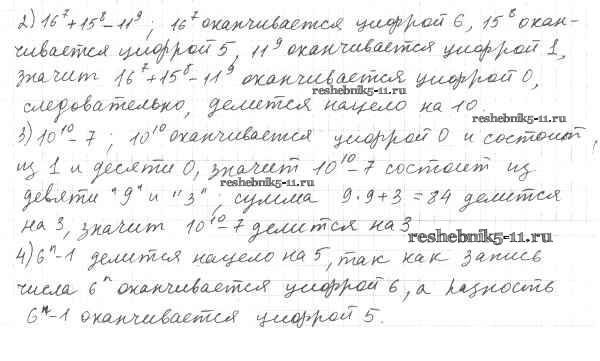 2) 16⁷+15⁸-11⁹; 16⁷ оканчивается цифрой 6, 15⁸ окан-
чивается цифрой 5, 11⁹ оканчивается цифрой 1,
значит 16⁷+15⁸-11⁹ оканчивается цифрой 0,
reshebnik5-11.ru
следовательно, делится нацело на 10.
reshebnik5-11.ru
3) 10¹⁰-7; 10¹⁰ оканчивается цифрой 0 и состоит,
из 1 и десяти 0, значит 10¹⁰-7 состоит из
reshebnik5-11.ru
девяти "9" и "3", сумма 9·9+3=84 делится
на 3, значит 10¹⁰-7 делится на 3
reshebnik5-11.ru
4) 6ⁿ-1 делится нацело на 5, так как запись
числа 6ⁿ оканчивается цифрой 6, а разность
6ⁿ-1 оканчивается цифрой 5.